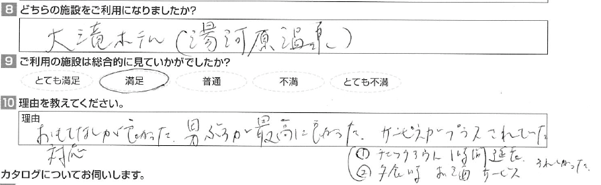 8 どちらの施設をご利用になりましたか?
大滝ホテル(湯河原温泉)
9 ご利用の施設は総合的に見ていかがでしたか?
とても満足 満足 普通 不満 とても不満
10 理由を教えてください。
理由
おもてなしが良かった、男ぶろが最高に良かった、サービスがプラスされていた
対応
(① チェックアウト 1時間 延長 うれしかった。
② 夕食時 お酒 サービス
カタログについてお伺いします。